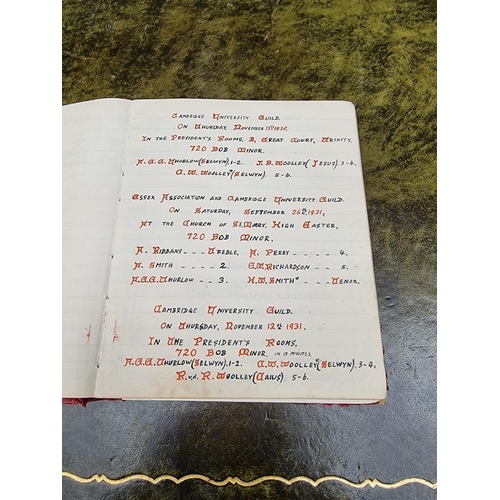 Cambridge University Guild.
On Thursday, November 13th 1930.
In the President's Rooms, B, Great Court, Trinity,
720 Bob Minor.
A.G.G. Thurlow (Selwyn). 1-2. J.B. Woolley (Jesus) 3-4.
C.W. Woolley (Selwyn). 5-6.
Essex Association and Cambridge University Guild.
On Saturday, September 26th, 1931,
At the Church of St. Mary, High Easter,
720 Bob Minor.
A. Ribbans --- Treble, A. Perry ---- 4.
A. Smith ---- 2. G.W. Richardson -- 5.
A.G.G. Thurlow -- 3. H.W. Smith* -- Tenor.
Cambridge University Guild.
On Thursday, November 12th 1931.
In the President's Rooms,
720 Bob Minor, in 17 minutes.
A.G.G. Thurlow (Selwyn). 1-2. C.W. Woolley (Selwyn). 3-4,
R. R. Woolley (Caius) 5-6.